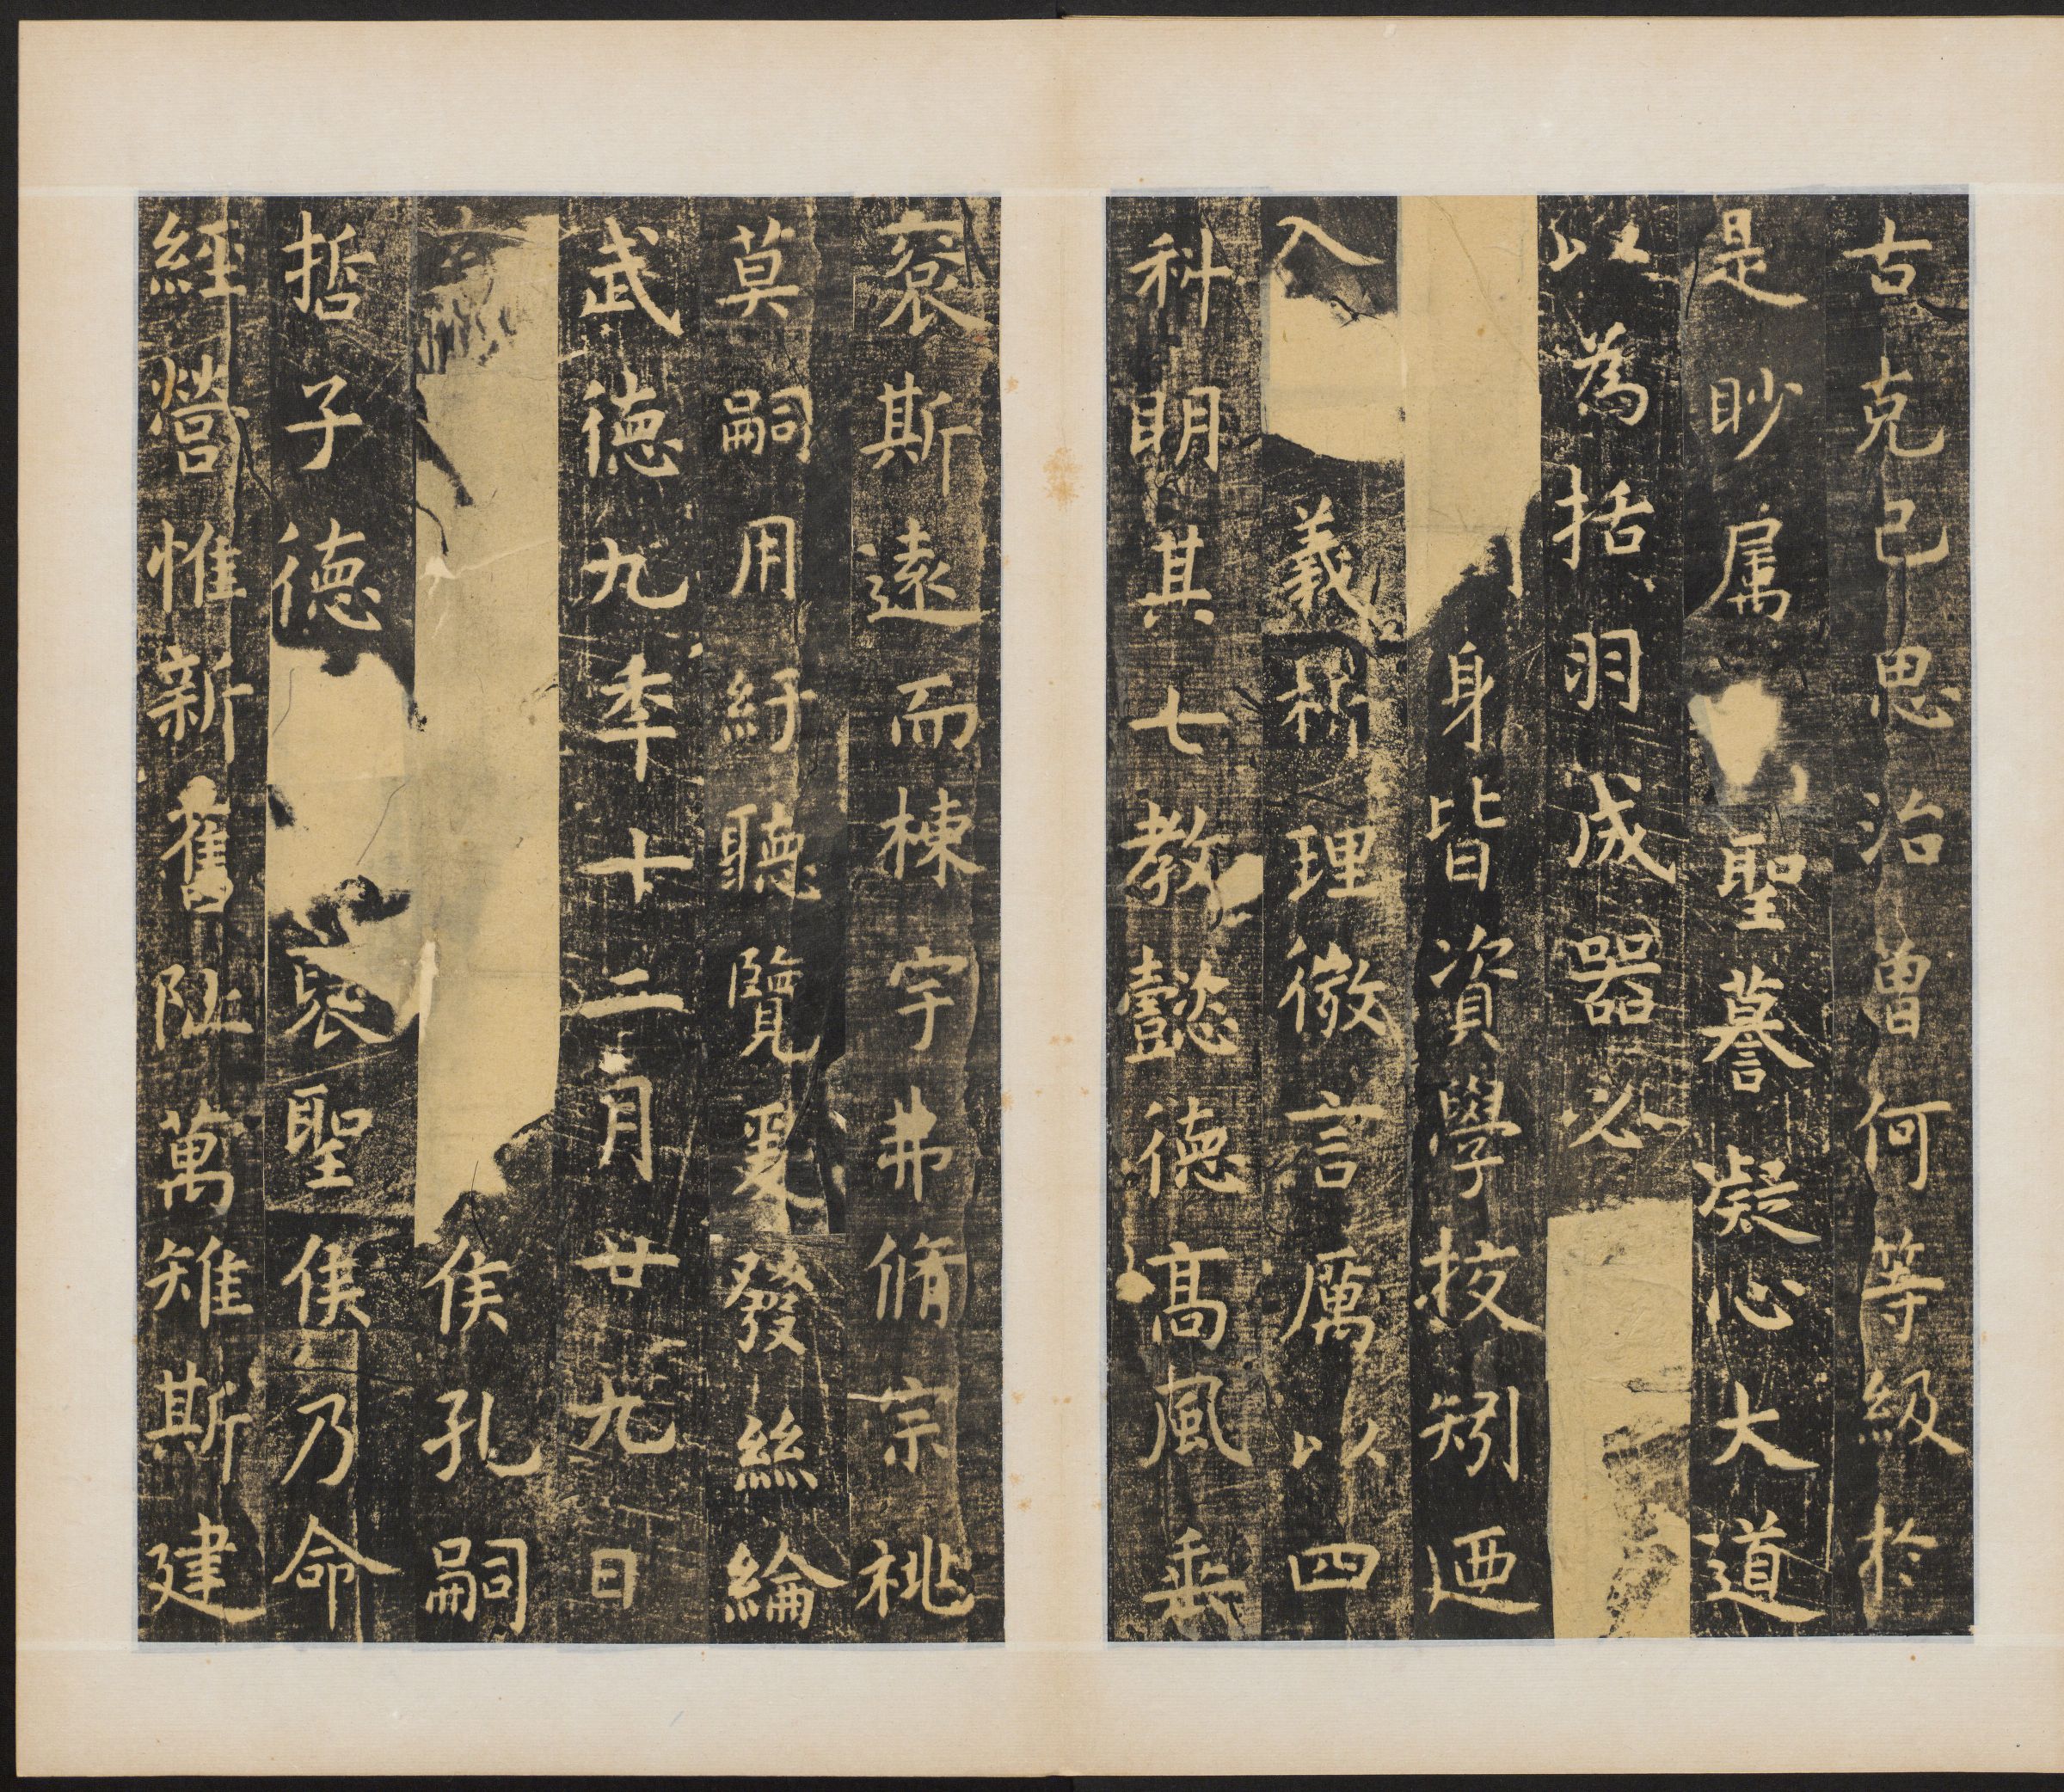 古克己思治曾何等級於
是眇属聖謩凝心大道
以為括羽成器必
身皆資學技矧廼
入義枿理徵言厲以四
科明其七教懿德髙風垂
裒斯遠而棟宇弗脩宗祧
莫嗣用紆聽覽爰發絲綸
武德九秊十二月廿九日
侯孔嗣
哲子德裒聖侯乃命
經營惟新舊阯萬雉斯建